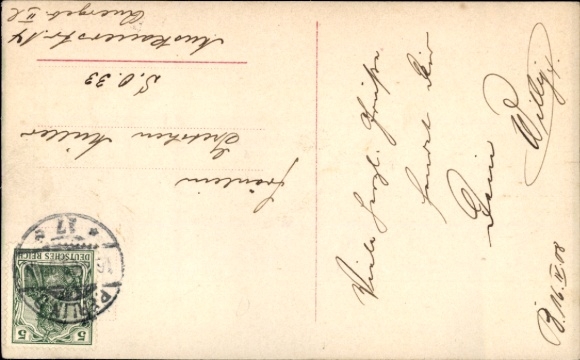 Viele herzl. Grüße
sendet Dir
Dein
Willy.
B. 16. IV. 08
Fräulein
Gretchen Müller
S.O. 33
Muskauerstr. 14
Quergeb. II l
DEUTSCHES REICH
5
5
BERLIN
17